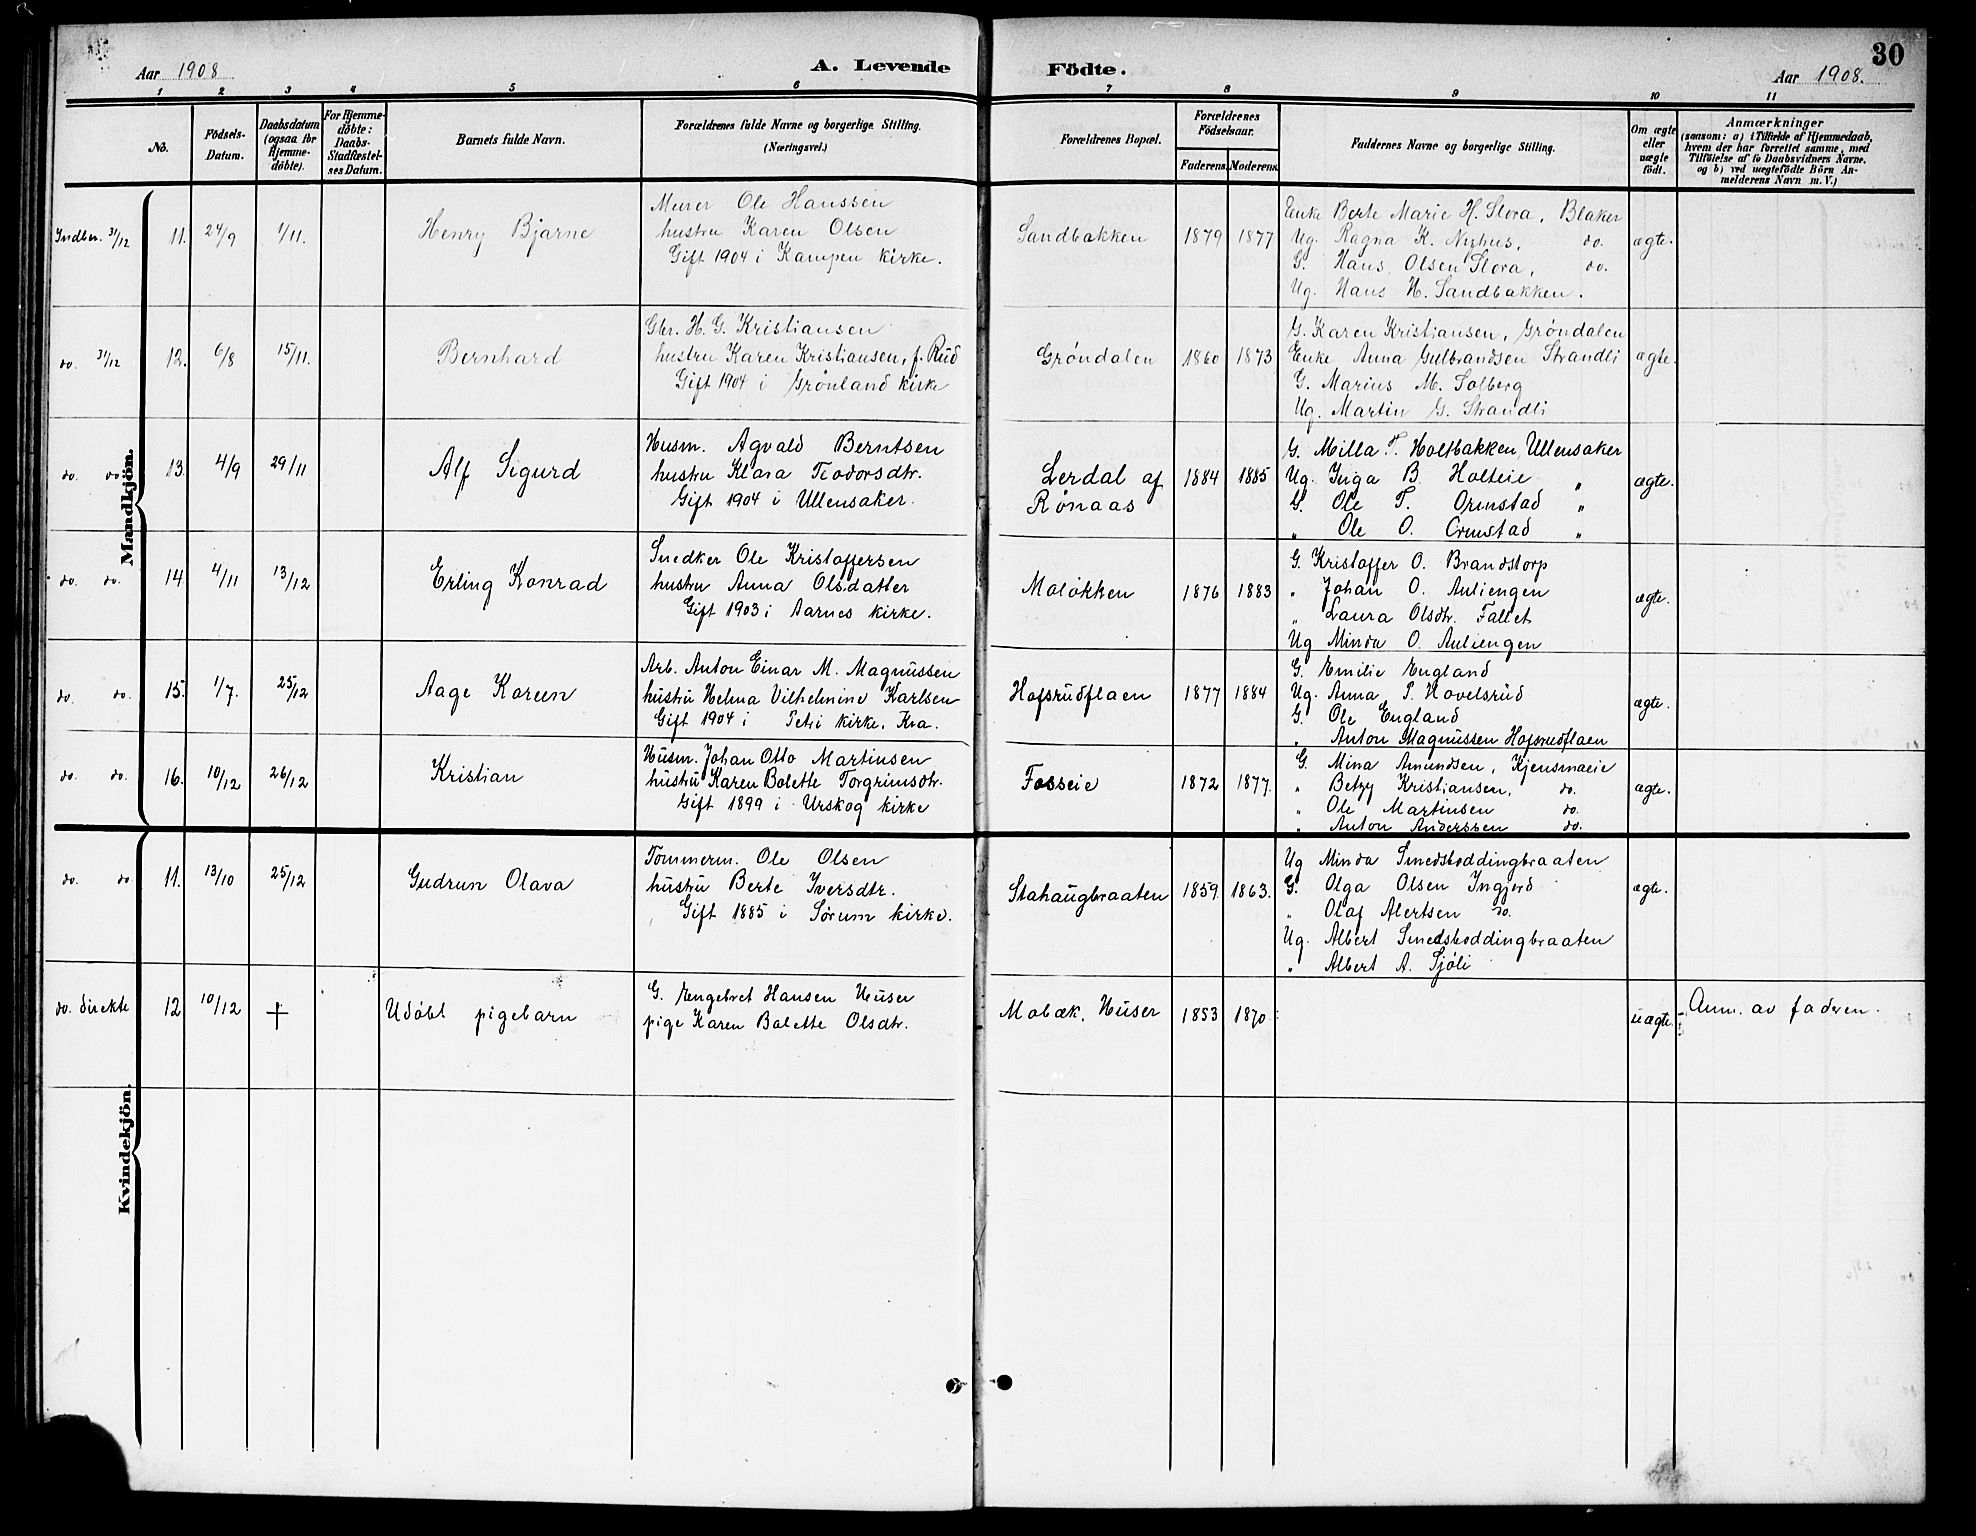 Aar 1908
A. Levende
Födte.
Aar 1908.
30
1 2 3 4 5 6 7 8 9 10 11
No.
Födsels-
Datum.
Daabsdatum
(ogsaa for
Hjemme-
döbte).
For Hjemme-
döbte:
Daabs-
Stadfæstel-
ses Datum.
Barnets fulde Navn.
Forældrenes fulde Navne og borgerlige Stilling.
(Næringsvei.)
Forældrenes Bopæl.
Forældrenes
Födselsaar.
Faderens. Moderens.
Faddernes Navne og borgerlige Stilling.
Om ægte
eller
uægte
födt.
Anmærkninger
(saasom: a) i Tilfælde af Hjemmedaab,
hvem der har forrettet samme, med
Tilföielse af to Daabsvidners Navne,
og b) ved uægtefödte Börn An-
melderens Navn m. V.)
Mandkjön.
Indber. 31/12 11. 24/9 1/11. Henry Bjarne
Murer Ole Hanssen
hustru Karen Olsen
Gift 1904 i Kampen kirke.
Sandbakken 1879 1877
Enke Berte Marie H. Stora, Blaker
Ug. Ragna K. Nyhus, do.
G. Hans Olsen Stora, do.
Ug. Hans H. Sandbakken.
ægte.
do. 31/12 12. 6/8 15/11. Bernhard
Gbr. H. G. Kristiansen
hustru Karen Kristiansen, f. Rud
Gift 1904 i Grønland kirke
Grøndalen 1860 1873
G. Karen Kristiansen, Grøndalen
Enke Anna Gulbrandsen Strandli
G. Marius M. Solberg
Ug. Martin G. Strandli
ægte.
do do 13. 4/9 29/11 Alf Sigurd
Husm. Agvald Berntsen
hustru Klara Teodorsdtr.
Gift 1904 i Ullensaker.
Lerdal af
Rønaas
1884 1885
G. Milla T. Holtbakken, Ullensaker
Ug. Inga B Holteie "
G. Ole T. Ormstad "
" Ole O. Ormstad "
ægte.
do. do. 14. 4/11 13/12 Erling Konrad
Snedker Ole Kristoffersen
hustru Anna Olsdatter
Gift 1903 i Aarnes kirke.
Moløkken 1876 1883
G. Kristoffer O. Brandstorp
" Johan O. Auliengen
" Laura Olsdtr. Fallet
Ug Minda O. Auliengen
ægte.
do. do. 15. 1/7. 25/12 Aage Koreen
Arb. Anton Einar M. Magnussen
hustru Helma Vilhelmine Karlsen
Gift 1904 i Petri kirke. Kra.
Hofsrudflaen 1877 1884
G. Emilie England
Ug. Anna P. Hovelsrud
G. Ole England
" Anton Magnussen Hofsrudflaen
ægte.
do. do. 16. 10/12 26/12 Kristian
Husm. Johan Otto Martinsen
hustru Karen Bolette Torgrimsdtr.
Gift 1899 i Urskog kirke
Fosseie 1872 1877.
G. Mina Amundsen, Kjensmoeie
" Betzy Kristiansen, do.
" Ole Martinsen do.
" Anton Anderssen do.
ægte.
Kvindekjön.
do. do 11. 13/10 25/12 Gudrun Olava
Tømmerm. Ole Olsen
hustru Berte Iversdtr.
Gift 1885 i Sørum kirke.
Stahaugbraaten 1859 1863.
Ug Minda Smedsboddingbraaten
G. Olga Olsen Ingjerd
" Olaf Alertsen do.
Ug. Albert Smedsboddingbraaten
" Albert A. Sjøli
ægte.
do. direkte 12 10/12 † Udøbt pigebarn
G. Engebret Hansen Huser
pige Karen Bolette Olsdtr.
Mobæk, Huser 1853 1870
uægte.
Anm. av faderen.